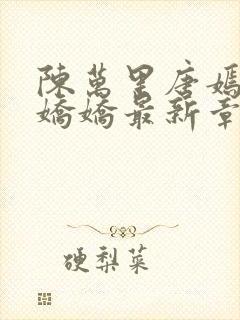 陳萬里唐嫣
嬌嬌最新章
硬梨菜